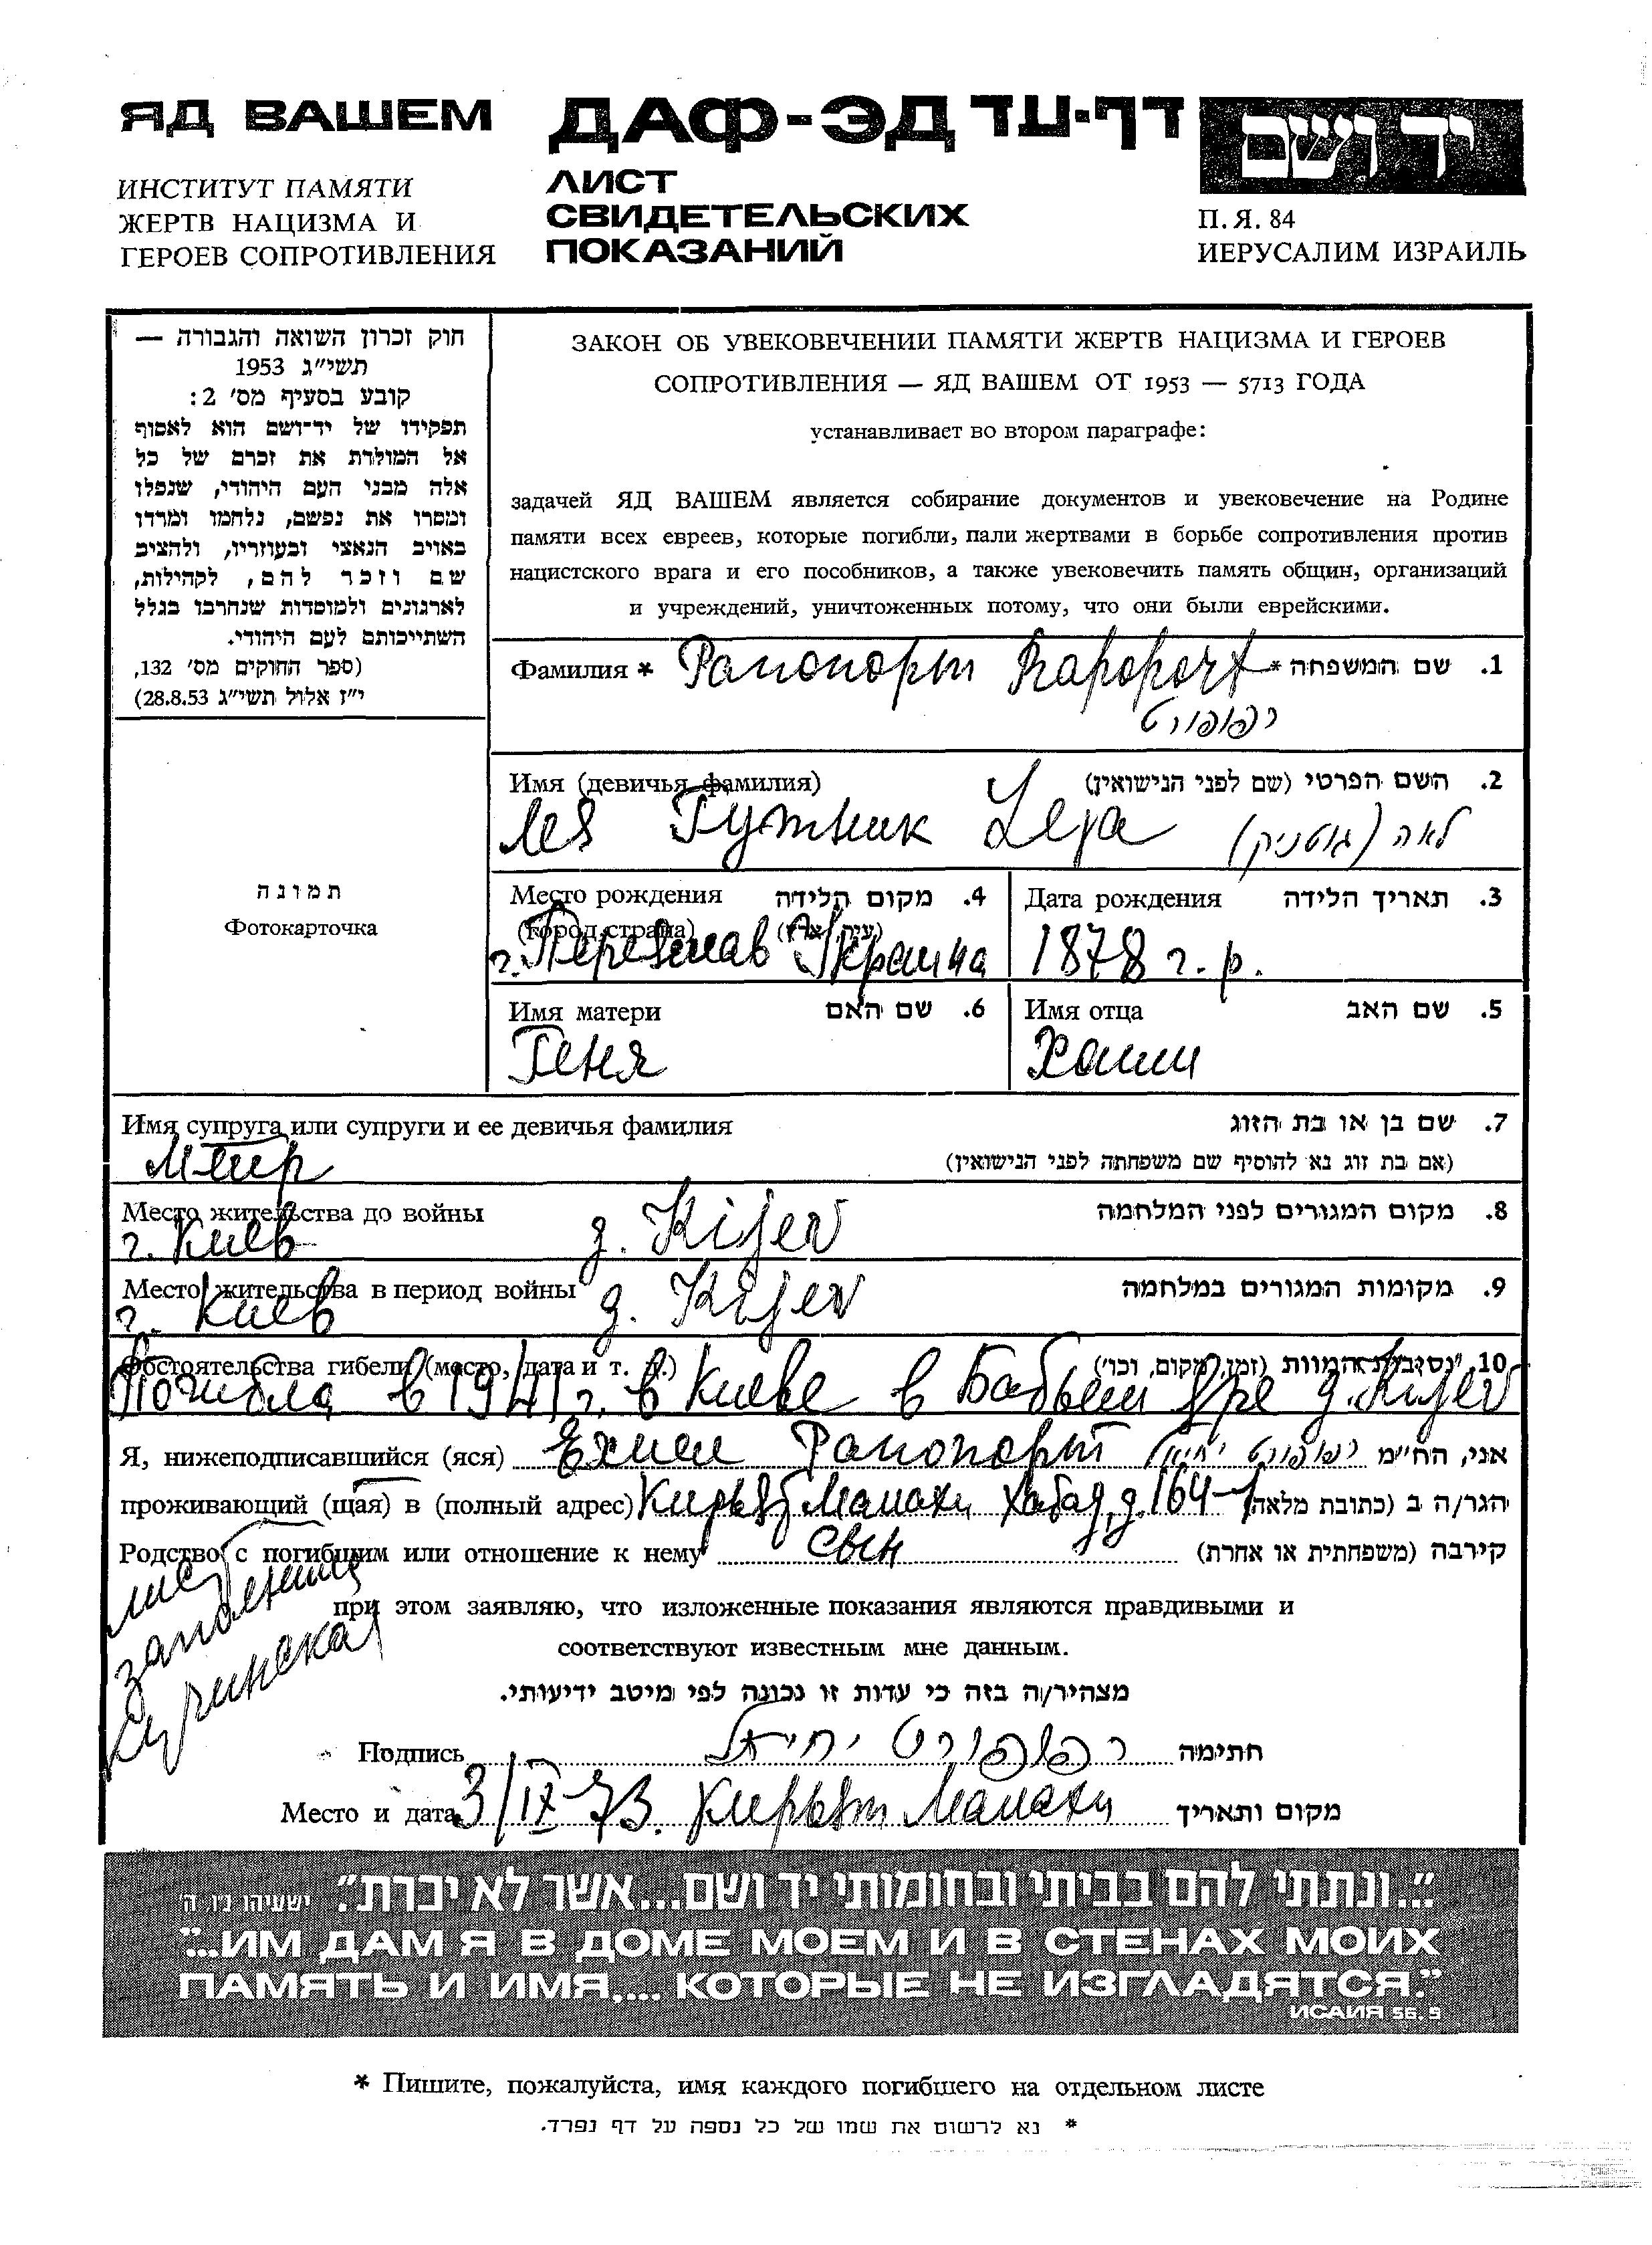 ЯД ВАШЕМ
ИНСТИТУТ ПАМЯТИ
ЖЕРТВ НАЦИЗМА И
ГЕРОЕВ СОПРОТИВЛЕНИЯ
ДАФ-ЭД דף-עד
ЛИСТ
СВИДЕТЕЛЬСКИХ
ПОКАЗАНИЙ
יד ושם
П. Я. 84
ИЕРУСАЛИМ ИЗРАИЛЬ
חוק זכרון השואה והגבורה —
תשי״ג 1953
קובע בסעיף מס׳ 2:
תפקידו של יד־ושם הוא לאסוף
אל המולדת את זכרם של כל
אלה מבני העם היהודי, שנפלו
ומסרו את נפשם, נלחמו ומרדו
באויב הנאצי ובעוזריו, ולהציב
שם וזכר להם, לקהילות,
לארגונים ולמוסדות שנחרבו בגלל
השתייכותם לעם היהודי.
(ספר החוקים מס׳ 132,
י״ז אלול תשי״ג 28.8.53)
תמונה
Фотокарточка
ЗАКОН ОБ УВЕКОВЕЧЕНИИ ПАМЯТИ ЖЕРТВ НАЦИЗМА И ГЕРОЕВ
СОПРОТИВЛЕНИЯ — ЯД ВАШЕМ ОТ 1953 — 5713 ГОДА
устанавливает во втором параграфе:
задачей ЯД ВАШЕМ является собирание документов и увековечение на Родине
памяти всех евреев, которые погибли, пали жертвами в борьбе сопротивления против
нацистского врага и его пособников, а также увековечить память общин, организаций
и учреждений, уничтоженных потому, что они были еврейскими.
Фамилия * Рапопорт Rapoport * שם המשפחה .1
רפופורט
Имя (девичья фамилия) השם הפרטי (שם לפני הנישואין) .2
Лея Гутник Leja לאה (גוטניק)
Место рождения מקום הלידה .4
(город, страна) (עיר, ארץ)
г. Переяслав Украина
Дата рождения תאריך הלידה .3
1878 г. р.
Имя матери שם האם .6
Геня
Имя отца שם האב .5
Хаим
Имя супруга или супруги и ее девичья фамилия שם בן או בת הזוג .7
Меир (אם בת זוג נא להוסיף שם משפחתה לפני הנישואין)
Место жительства до войны מקום המגורים לפני המלחמה .8
г. Киев g. Kijev
Место жительства в период войны מקומות המגורים במלחמה .9
г. Киев g. Kijev
Обстоятельства гибели (место, дата и т. д.) נסיבות המוות (זמן, מקום, וכו׳) .10
Погибла в 1941 г. в Киеве в Бабьем Яре g. Kijev
Я, нижеподписавшийся (яся) Ехиел Рапопорт רפופורט יחיאל אני, הח״מ
проживающий (щая) в (полный адрес) Кирьят Малахи Хабад д. 164-1 הגר/ה ב (כתובת מלאה)
Родство с погибшим или отношение к нему сын קירבה (משפחתית או אחרת)
лист
заполнила
при этом заявляю, что изложенные показания являются правдивыми и
соответствуют известным мне данным.
מצהיר/ה בזה כי עדות זו נכונה לפי מיטב ידיעותי.
Подпись רפופורט יחיאל חתימה
Место и дата 3/IX-73. Кирьят Малахи מקום ותאריך
״...ונתתי להם בביתי ובחומותי יד ושם...אשר לא יכרת״. ישעיהו נ״ו, ה׳
"...ИМ ДАМ Я В ДОМЕ МОЕМ И В СТЕНАХ МОИХ
ПАМЯТЬ И ИМЯ.... КОТОРЫЕ НЕ ИЗГЛАДЯТСЯ."
ИСАИЯ 56.5
* Пишите, пожалуйста, имя каждого погибшего на отдельном листе
* נא לרשום את שמו של כל נספה על דף נפרד.